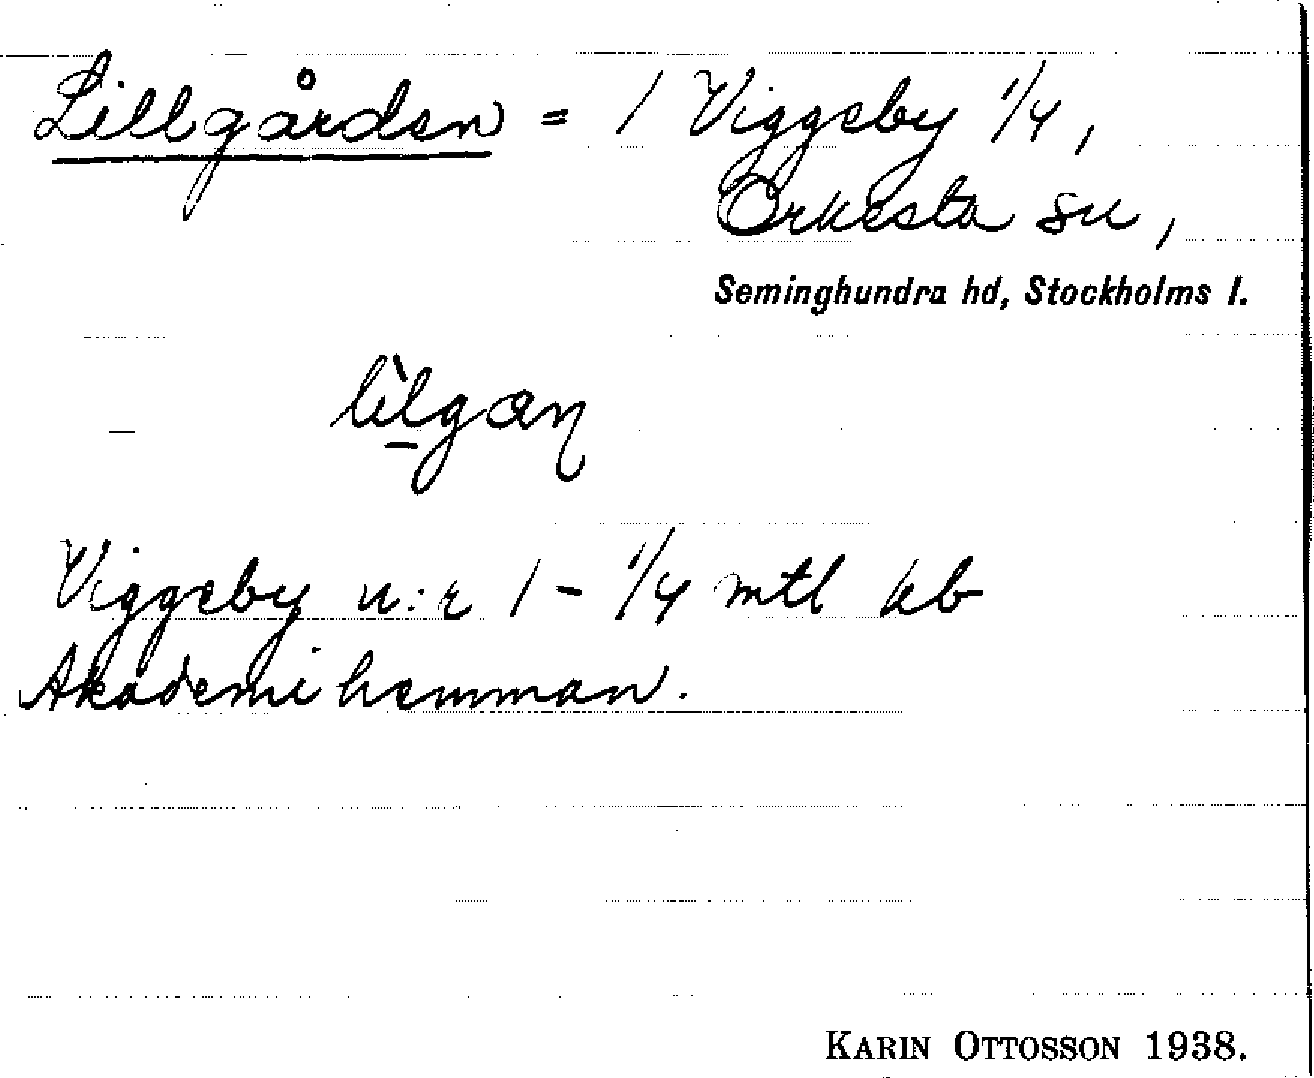 Lillgården = 1 Viggeby 1/4,
Orkesta sn,
Seminghundra hd, Stockholms l.
lìlgaɳ
Viggeby n:r 1 - 1/4 mtl kb
Akademihemman.
KARIN OTTOSSON 1938.